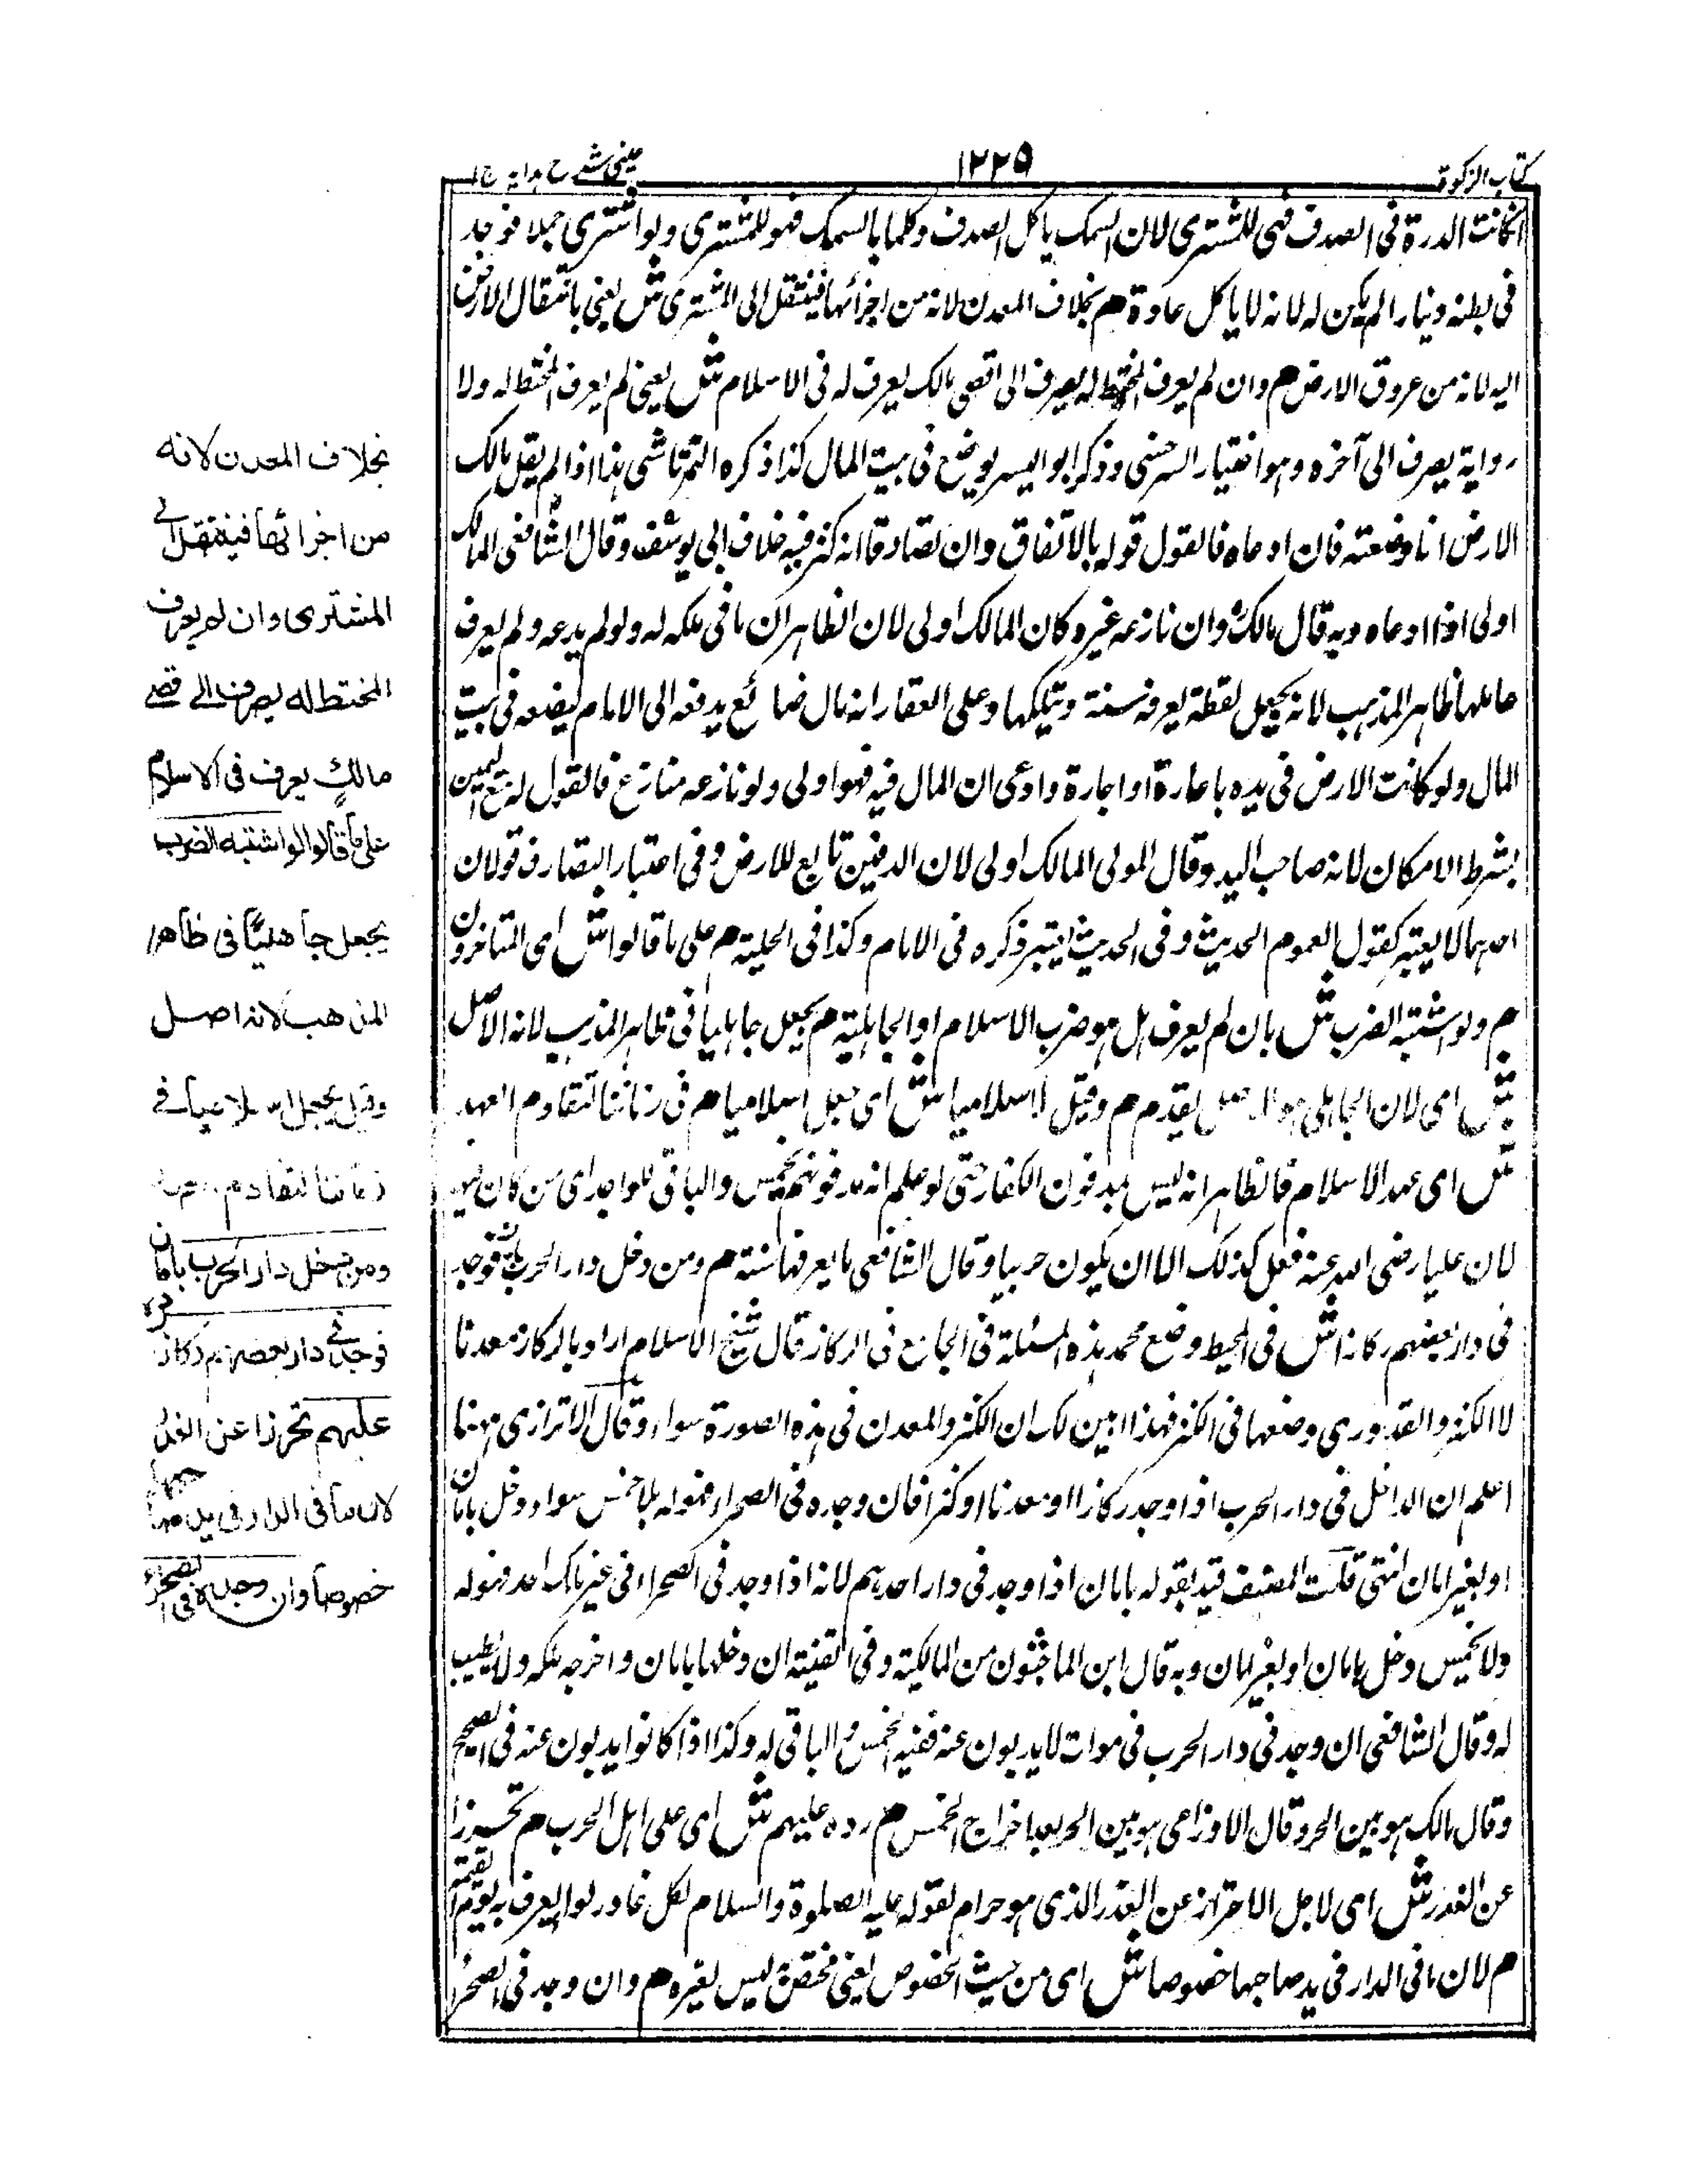 كتاب الزكوة
١٢٢٥
عينى شرح هدايه ج ١
انكانت الدرة فى الصدف فهى للمشترى لان السمك ياكل الصدف وكلما يا السمك فهو للمشترى ولو اشترى جملا فوجد
فى بطنه دينارا لم يكن له لانه لا ياكل عادة م بخلاف المعدن لانه من اجزائها فينتقل الى المشترى ش يعنى بانتقال الارض
اليه لانه من عروق الارض م وان لم يعرف المختط له يصرف الى اقصى مالك يعرف له فى الاسلام ش يعنى لم يعرف المختط له ولا
رواية يصرف الى آخره وهو اختيار السرخسى وذكر ابو اليسر يوضع فى بيت المال كذا ذكره التمرتاشى هذا اذا لم يقل مالك
الارض انا وضعته فان ادعاه فالقول قوله بالاتفاق وان تصادقا انه كنز فيه خلاف ابى يوسف وقال الشافعى المالك
اولى اذا ادعاه وبه قال مالك وان نازعه غيره كان المالك اولى لان الظاهر ان ما فى ملكه له ولو لم يدعه ولم يعرف
حاملها ظاهر المذهب لانه يجعل لقطة يعرفه سنة ويتملكها وعلى العقار انه مال ضائع يدفعه الى الامام ليضعه فى بيت
المال ولو كانت الارض فى يده باعارة او اجارة وادعى ان المال فيه فهو اولى ولو نازعه منازع فالقول له مع اليمين
بشرط الامكان لانه صاحب اليد وقال المولى المالك اولى لان الدفين تابع للارض وفى اعتبار النصاب فيه قولان
احدهما لا يعتبر كقول لعموم الحديث وفى الحديث يعتبر ذكره فى الامام وكذا فى الحلية م على ما قالوا ش اى المتاخرون
م ولو اشتبه الضرب ش بان لم يعرف هل هو ضرب الاسلام او الجاهلية م يجعل جاهليا فى ظاهر المذهب لانه الاصل
ش اى لان الجاهلى هو الاصل لقدم م وقيل لاسلاميا ش اى جعل اسلاميا م فى زماننا لتقادم العهد
ش اى عهد الاسلام فالظاهر انه ليس بمدفون الكفار حتى لو علم انه مدفونهم يخمس والباقى للواجد اى من كان
لان عليا رضى الله عنه فعل كذلك الا ان يكون حربيا وقال الشافعى ما يعرفها سنة م ومن دخل دار الحرب بامان فوجد
فى دار بعضهم ركازا ش فى المحيط وضع محمد هذه المسئلة فى الجامع فى الركاز قال شيخ الاسلام اراد بالركاز معدنا
لا الكنز والقدورى وضعها فى الكنز فهذا ابين لك ان الكنز والمعدن فى هذه الصورة سواء وقال الاترازى ههنا
اعلم ان الداخل فى دار الحرب اذا وجد ركازا او معدنا او كنزا فان وجده فى الصحراء فهو له بلا خمس سواء دخل بامان
او بغير امان انتهى قلت المصنف قيد بقوله بامان اذا وجد فى دار احدهم لانه اذا وجد فى الصحراء فى غير ملك احد فهو له
ولا يخمس دخل بامان او بغير امان وبه قال ابن الماجشون من المالكية وفى القنية ان دخلها بامان واخرجه ملكه ولا يطيب
له وقال الشافعى ان وجد فى دار الحرب فى موات لا يذبون عنه ففيه الخمس والباقى له وكذا اذا كانوا يذبون عنه فى الصحيح
وقال مالك هو بين الحر وقال الاوزاعى هو بين الحر بعد اخراج الخمس م رده عليهم ش اى على اهل الحرب م تحرزا
عن الغدر ش اى لاجل الاحتراز عن الغدر الذى هو حرام لقوله عليه الصلوة والسلام لكل غادر لواء يعرف به يوم القيمة
م لان ما فى الدار فى يد صاحبها خصوصا ش اى من حيث الخصوص يعنى مختص ليس لغيره م وان وجد فى الصحراء
بخلاف المعدن لانه
من اجزائها فينتقل الى
المشترى وان لم يعرف
المختط له يصرف الى اقصى
مالك يعرف فى الاسلام
على ما قالوا ولو اشتبه الضرب
يجعل جاهليًا فى ظاهر
المذهب لانه اصل
وقيل يجعل اسلاميا فى
زماننا لتقادم العهد
ومن دخل دار الحرب بامان
فوجد فى دار بعضهم ركازا رده
عليهم تحرزا عن الغدر
لان ما فى الدار فى يد صاحبها
خصوصا وان وجده فى الصحراء